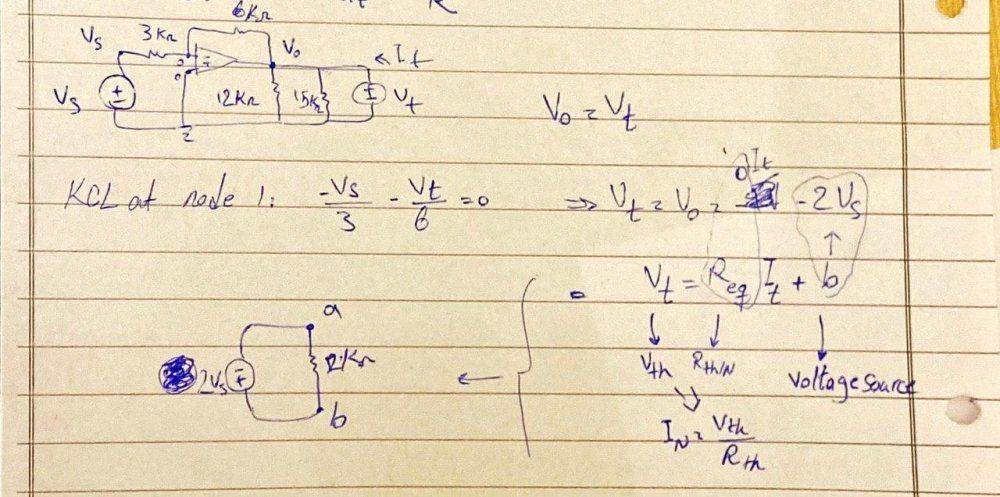 R
6KΩ
Vs 3KΩ Vo ← It
Vs 12KΩ 15KΩ Vt
2
Vo = Vt
KCL at node 1: -Vs/3 - Vt/6 = 0 ⇒ Vt = Vo = 0It - 2Vs
Vt = Req It + b
Vth Rth/N Voltage source
IN = Vth/Rth
a
2Vs 12KΩ
b